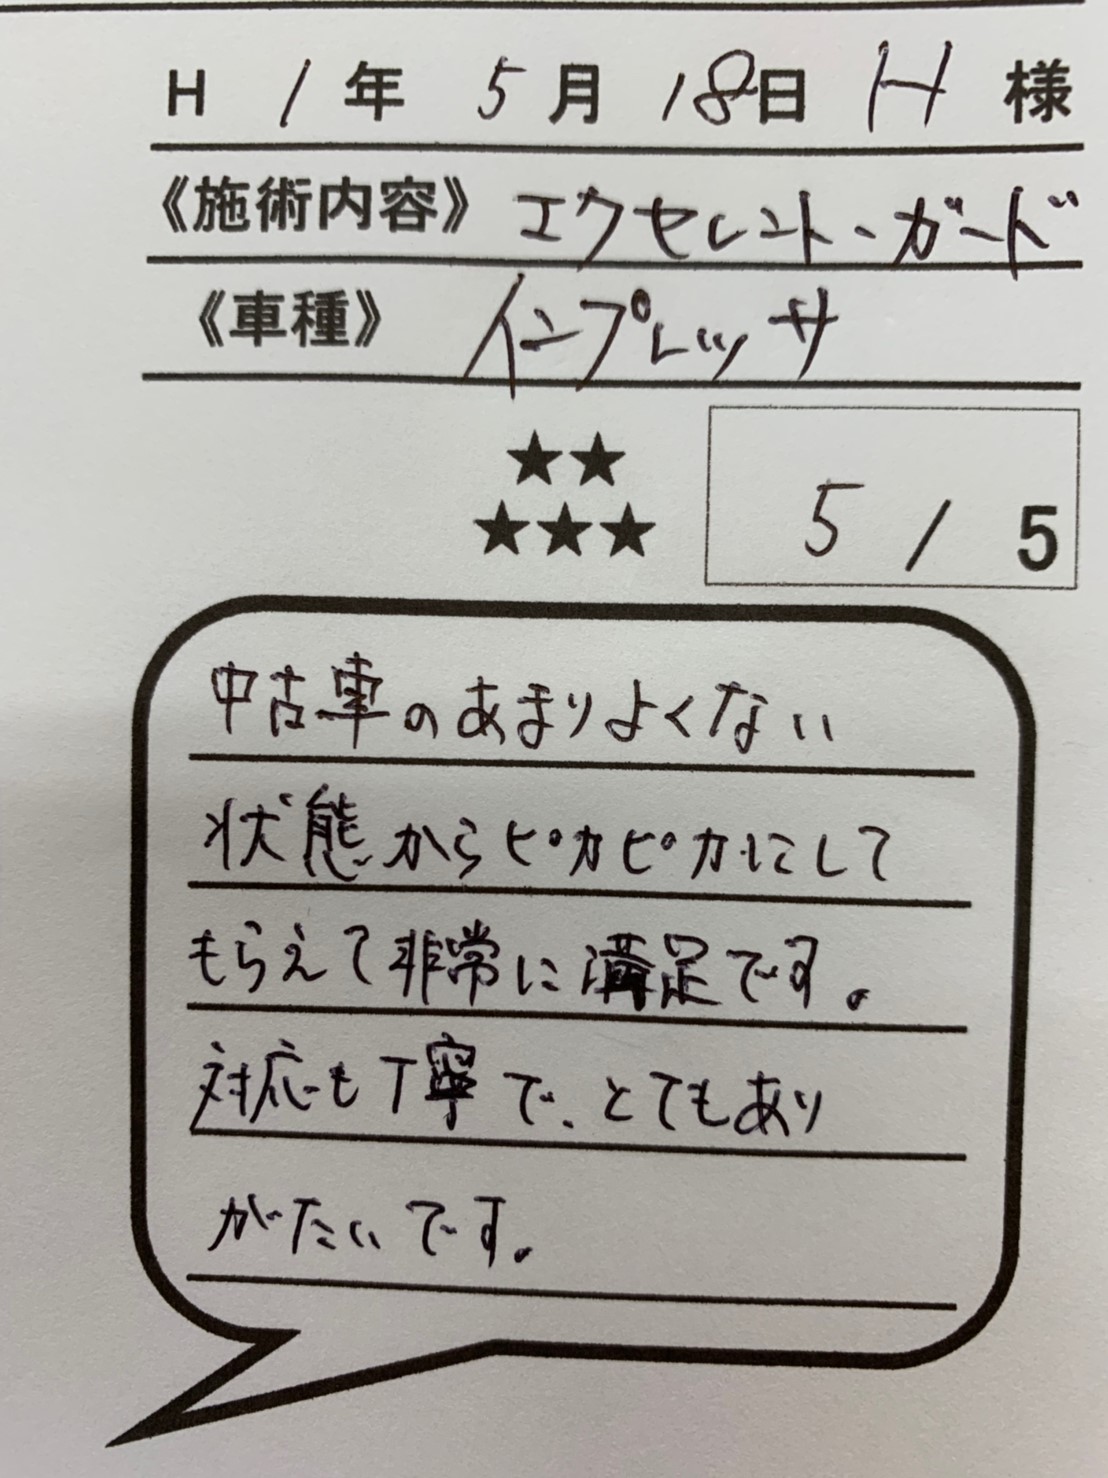 H 1年 5月 18日 H 様
《施術内容》 エクセレント・ガード
《車種》 インプレッサ
★★
★★★ 5 / 5
中古車のあまりよくない
状態からピカピカにして
もらえて非常に満足です。
対応も丁寧で、とてもあり
がたいです。